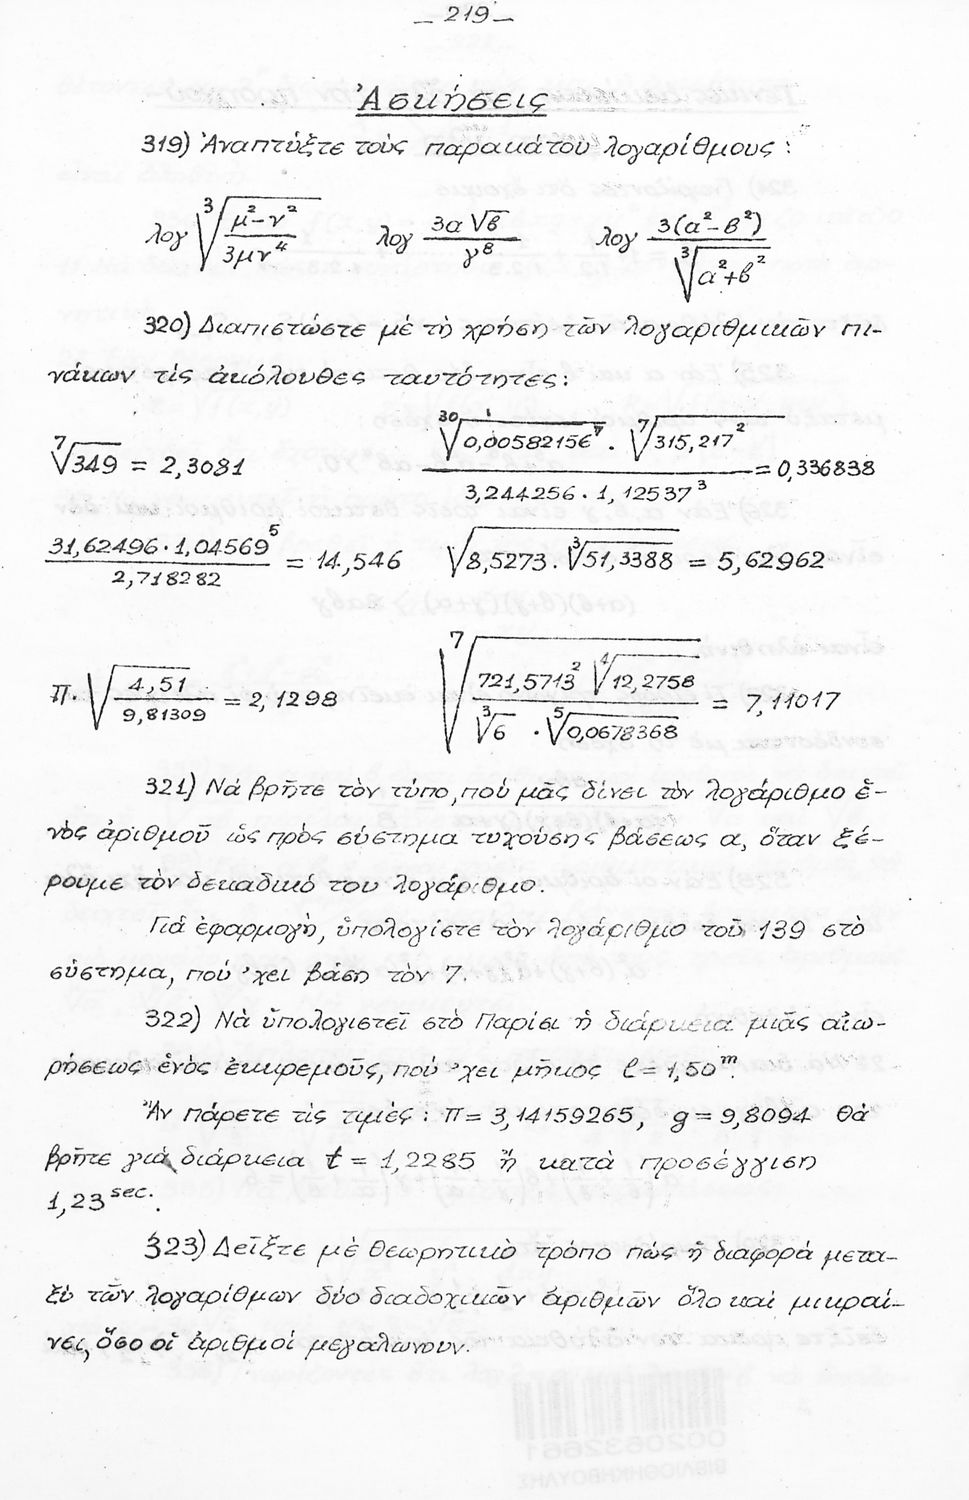 _ 219 _
Ἀσκήσεις
319) Ἀναπτύξτε τοὺς παρακάτου λογαρίθμους :
λογ ∛((μ²-ν²)/(3μν⁴))   λογ (3α√β)/γ⁸   λογ (3(α²-β²))/∛(α²+β²)
320) Διαπιστώστε μὲ τὴ χρήση τῶν λογαριθμικῶν πι-
νάκων τὶς ἀκόλουθες ταυτότητες :
⁷√349 = 2,3081   (³⁰√(0,00582156⁷) · ⁷√(315,217²))/(3,244256 · 1,12537³) = 0,336838
(31,62496 · 1,04569⁵)/2,718282 = 14,546   √(8,5273 · ∛51,3388) = 5,62962
π · √(4,51/9,81309) = 2,1298   ⁷√((721,5713² ⁴√12,2758)/(∛6 · ⁵√0,0678368)) = 7,11017
321) Νὰ βρῆτε τὸν τύπο, πού μᾶς δίνει τὸν λογάριθμο ἑ-
νὸς ἀριθμοῦ ὡς πρὸς σύστημα τυχούσης βάσεως α, ὅταν ξέ-
ρουμε τὸν δεκαδικό του λογάριθμο.
Γιὰ ἐφαρμογὴ, ὑπολογίστε τὸν λογάριθμο τοῦ 139 στὸ
σύστημα, πού ᾽χει βάση τὸν 7.
322) Νὰ ὑπολογιστεῖ στὸ Παρίσι ἡ διάρκεια μιᾶς αἰω-
ρήσεως ἑνὸς ἐκκρεμοῦς, πού ᾽χει μῆκος ℓ = 1,50ᵐ.
Ἂν πάρετε τὶς τιμὲς : π = 3,14159265, g = 9,8094 θὰ
βρῆτε γιὰ διάρκεια t = 1,2285 ἢ κατὰ προσέγγιση
1,23 sec.
323) Δεῖξτε μὲ θεωρητικὸ τρόπο πὼς ἡ διαφορά μετα-
ξὺ τῶν λογαρίθμων δύο διαδοχικῶν ἀριθμῶν ὅλο καὶ μικραί-
νει, ὅσο οἱ ἀριθμοί μεγαλώνουν.